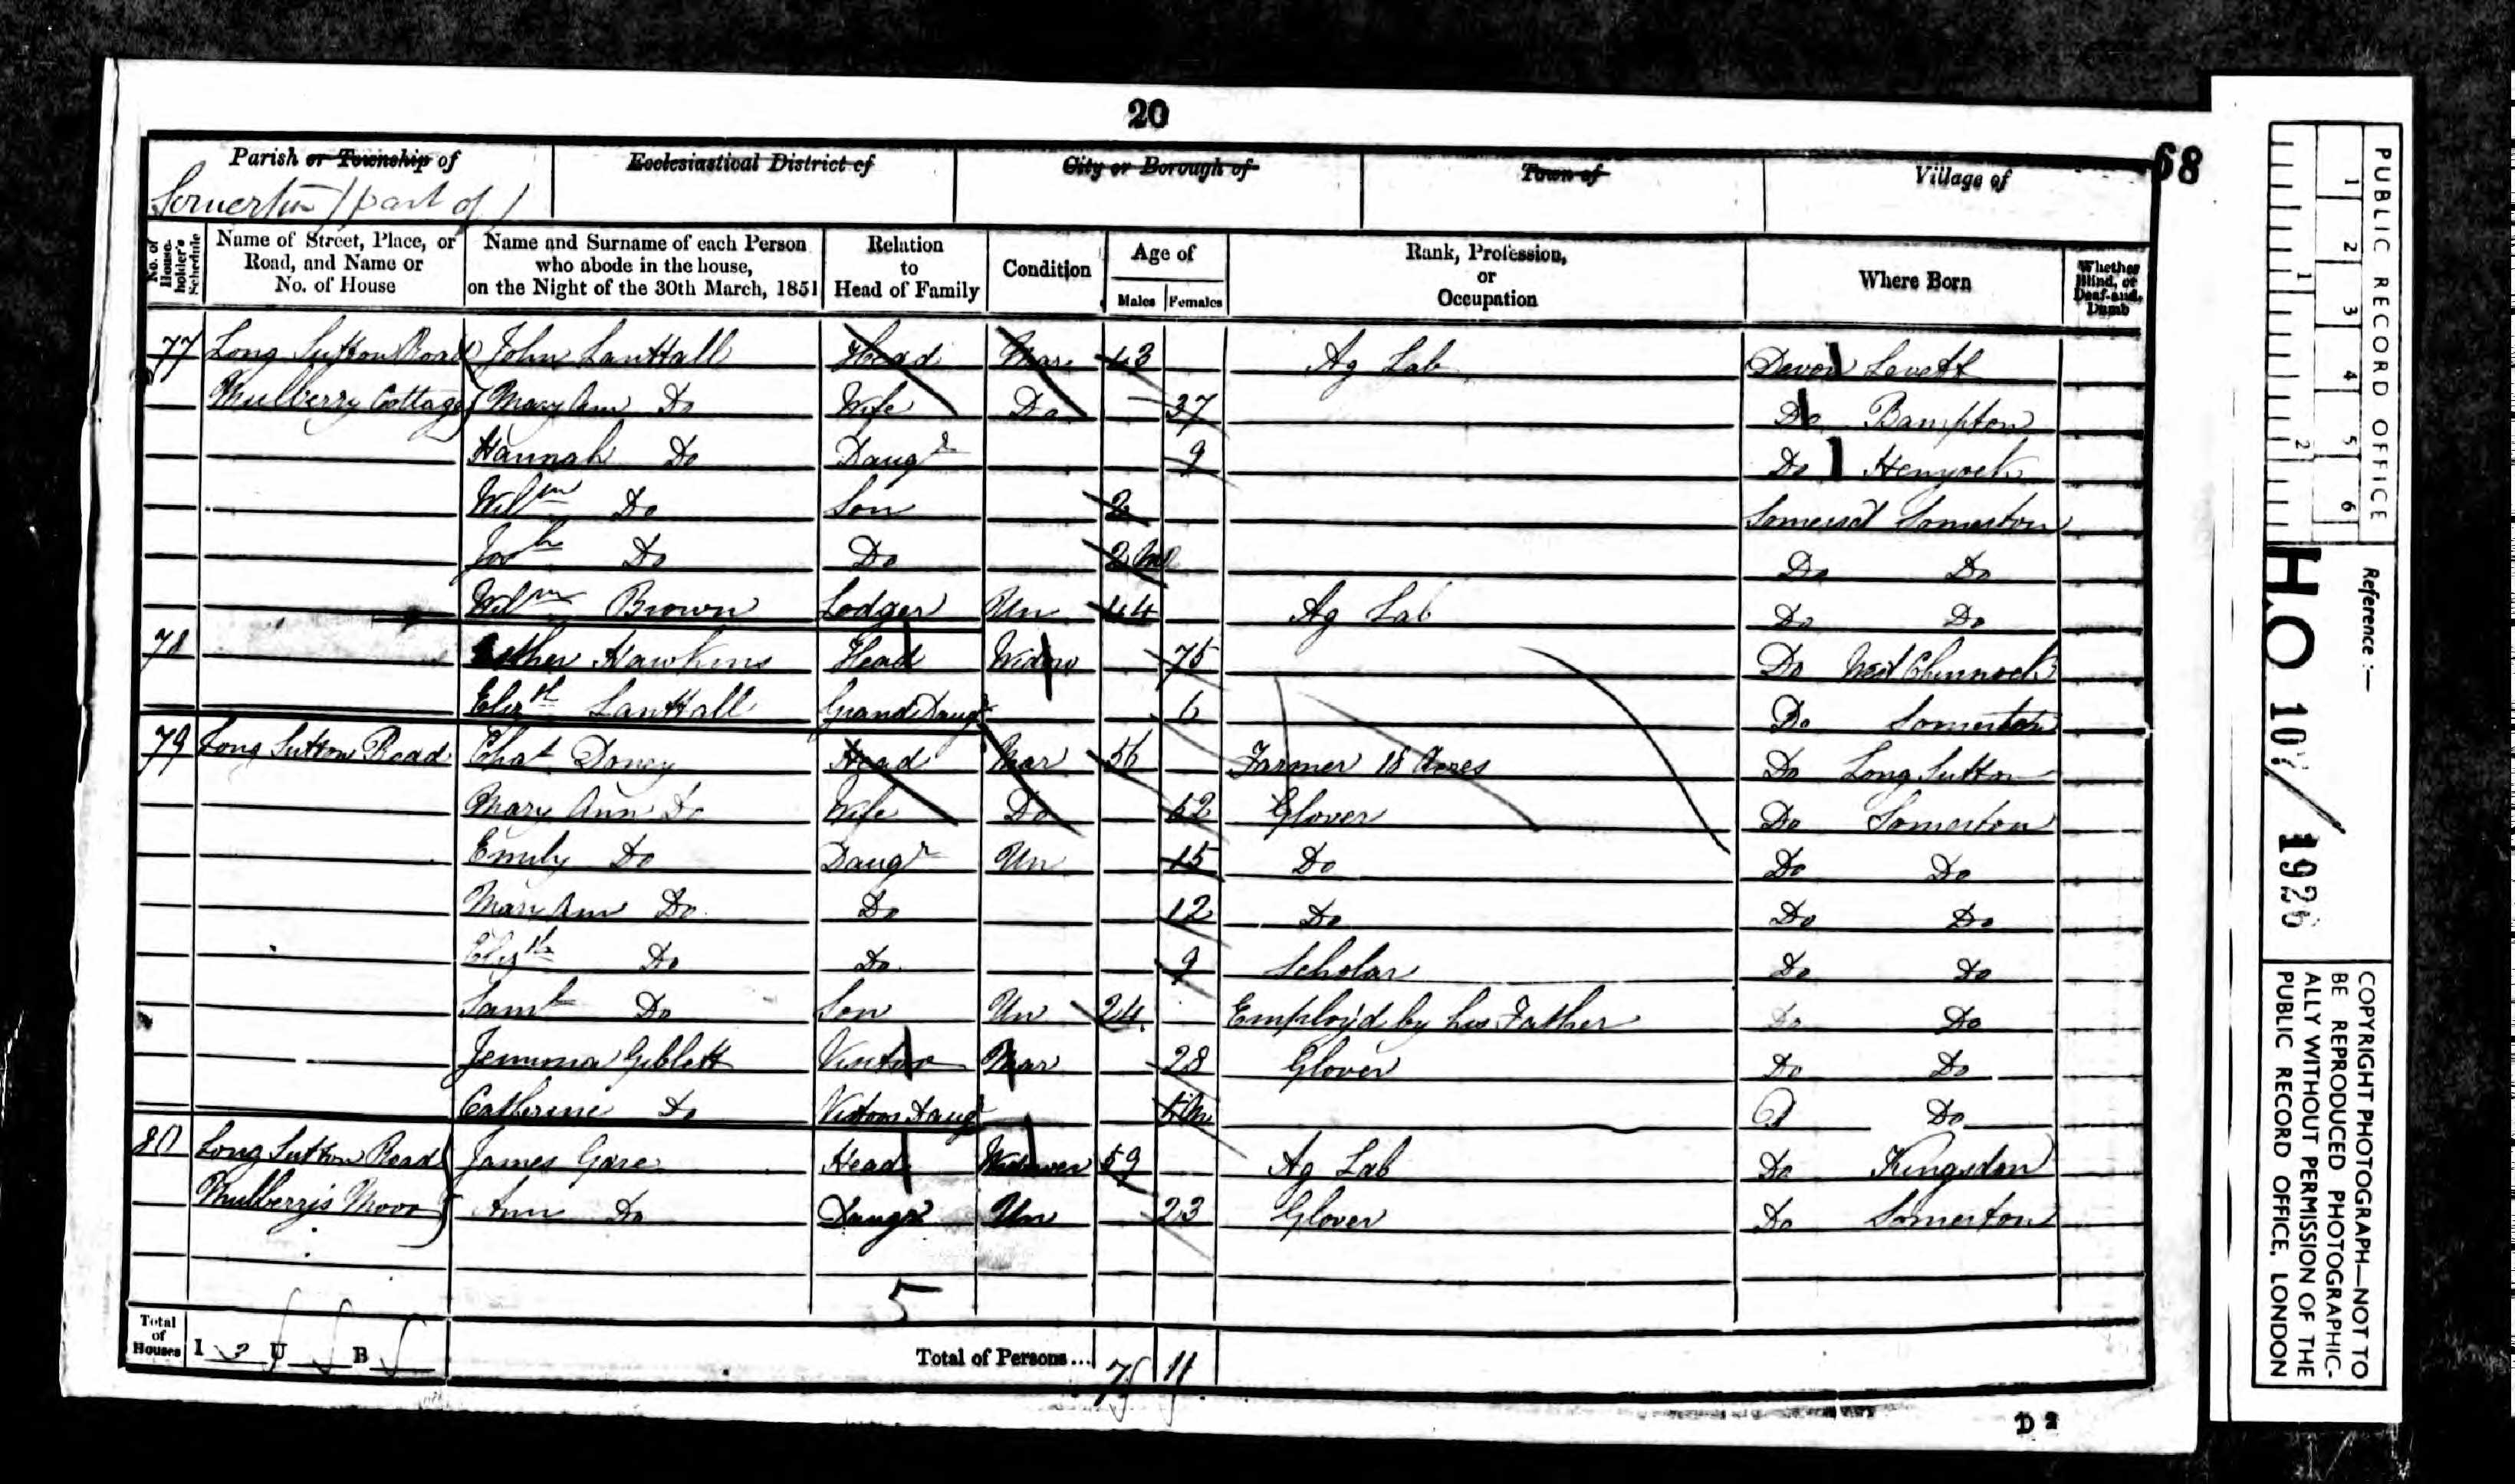 20
68
Parish or Township of
Somerton (part of)
Ecclesiastical District of
City or Borough of
Town of
Village of
No. of House-holder's Schedule
Name of Street, Place, or Road, and Name or No. of House
Name and Surname of each Person who abode in the house, on the Night of the 30th March, 1851
Relation to Head of Family
Condition
Age of
Males Females
Rank, Profession, or Occupation
Where Born
Whether Blind, or Deaf-and-Dumb
77 Long Sutton Road John Lanttall Head Mar 43 Ag Lab Devon
Mulberry Cottage Mary Ann Do Wife Do 37 Do Bampton
Hannah Do Daugr 9 Do Hemyock
Wilm Do Son 2 Somerset Somerton
Josh Do Do 2 Mo Do Do
Wilm Brown Lodger Un 44 Ag Lab Do Do
78 Esther Hawkins Head Widow 75 Do West Chinnock
Elizth Lanttall Grand Daugr 6 Do Somerton
79 Long Sutton Road Chas Doney Head Mar 56 Farmer 18 Acres Do Long Sutton
Mary Ann Do Wife Do 52 Glover Do Somerton
Emily Do Daugr Un 15 Do Do Do
Mary Ann Do Do 12 Do Do Do
Elizth Do Do 9 Scholar Do Do
Saml Do Son Un 24 Employ'd by his Father Do Do
Jemima Giblett Visitor Mar 28 Glover Do Do
Catherine Do Visitors Daugr 5 Mo Do
80 Long Sutton Road James Gare Head Widower 59 Ag Lab Do Kingsdon
Mulberry's Moor Ann Do Daugr Un 23 Glover Do Somerton
5
Total of Houses I 3 U B
Total of Persons... 7 11
D 2
PUBLIC RECORD OFFICE
1 2 3 4 5 6
1 2
Reference :-
H.O 107/1926
COPYRIGHT PHOTOGRAPH—NOT TO BE REPRODUCED PHOTOGRAPHIC-ALLY WITHOUT PERMISSION OF THE PUBLIC RECORD OFFICE, LONDON